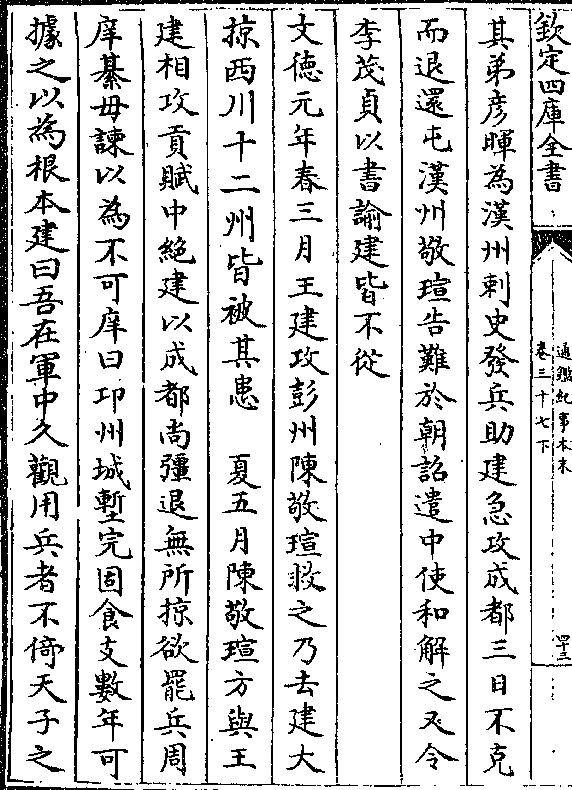 欽定四庫全書
通鑑紀事本末
卷三十七下
四十三
其弟彦暉為漢州刺史發兵助建急攻成都三日不克
而退還屯漢州敬瑄告難於朝詔遣中使和解之又令
李茂貞以書諭建皆不從
文徳元年春三月王建攻彭州陳敬瑄救之乃去建大
掠西川十二州皆被其患　夏五月陳敬瑄方與王
建相攻貢賦中絶建以成都尚彊退無所掠欲罷兵周
庠綦毋諫以為不可庠曰邛州城塹完固食支數年可
據之以為根本建曰吾在軍中久觀用兵者不倚天子之